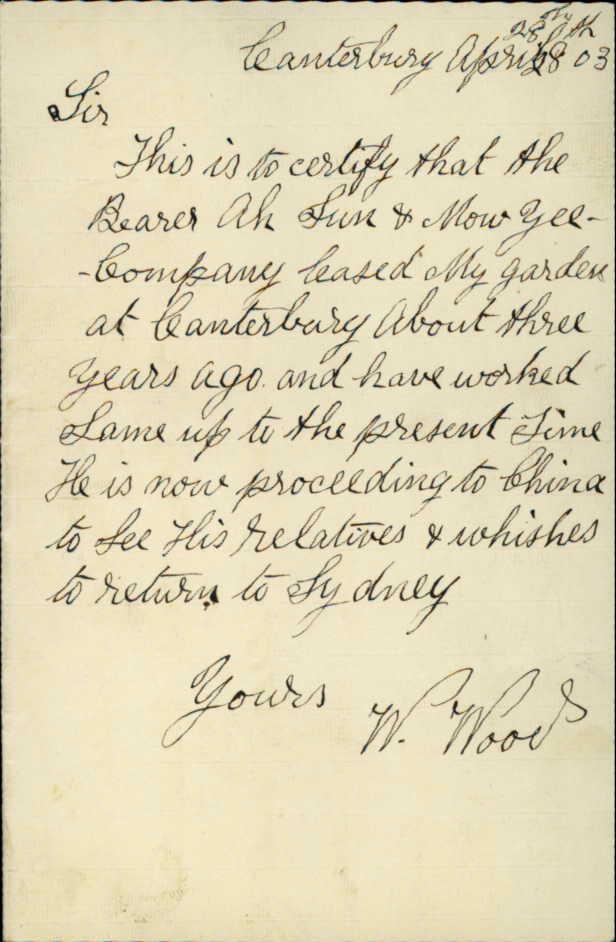 Canterbury April 28th 03
Sir
This is to certify that the
Bearer Ah Sun & Mow Yee-
-Company leased My garden
at Canterbury About three
years ago. and have worked
Same up to the present Time
He is now proceeding to China
to See His relatives & whishes
to return to Sydney
Yours
W. Wood